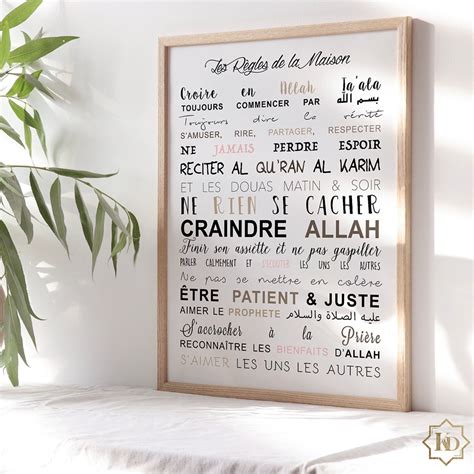 Les Règles de la Maison
Croire en Allah Ta'ala
TOUJOURS COMMENCER PAR بسم الله
Toujours dire la vérité
S'AMUSER, RIRE, PARTAGER, RESPECTER
NE JAMAIS PERDRE ESPOIR
RECITER AL QU'RAN AL KARIM
ET LES DOUAS MATIN & SOIR
NE RIEN SE CACHER
CRAINDRE ALLAH
Finir son assiette et ne pas gaspiller
PARLER CALMEMENT ET S'ECOUTER LES UNS LES AUTRES
Ne pas se mettre en colère
ÊTRE PATIENT & JUSTE
AIMER LE PROPHETE عليه الصلاة والسلام
S'accrocher à la Prière
RECONNAÎTRE LES BIENFAITS D'ALLAH
S'AIMER LES UNS LES AUTRES